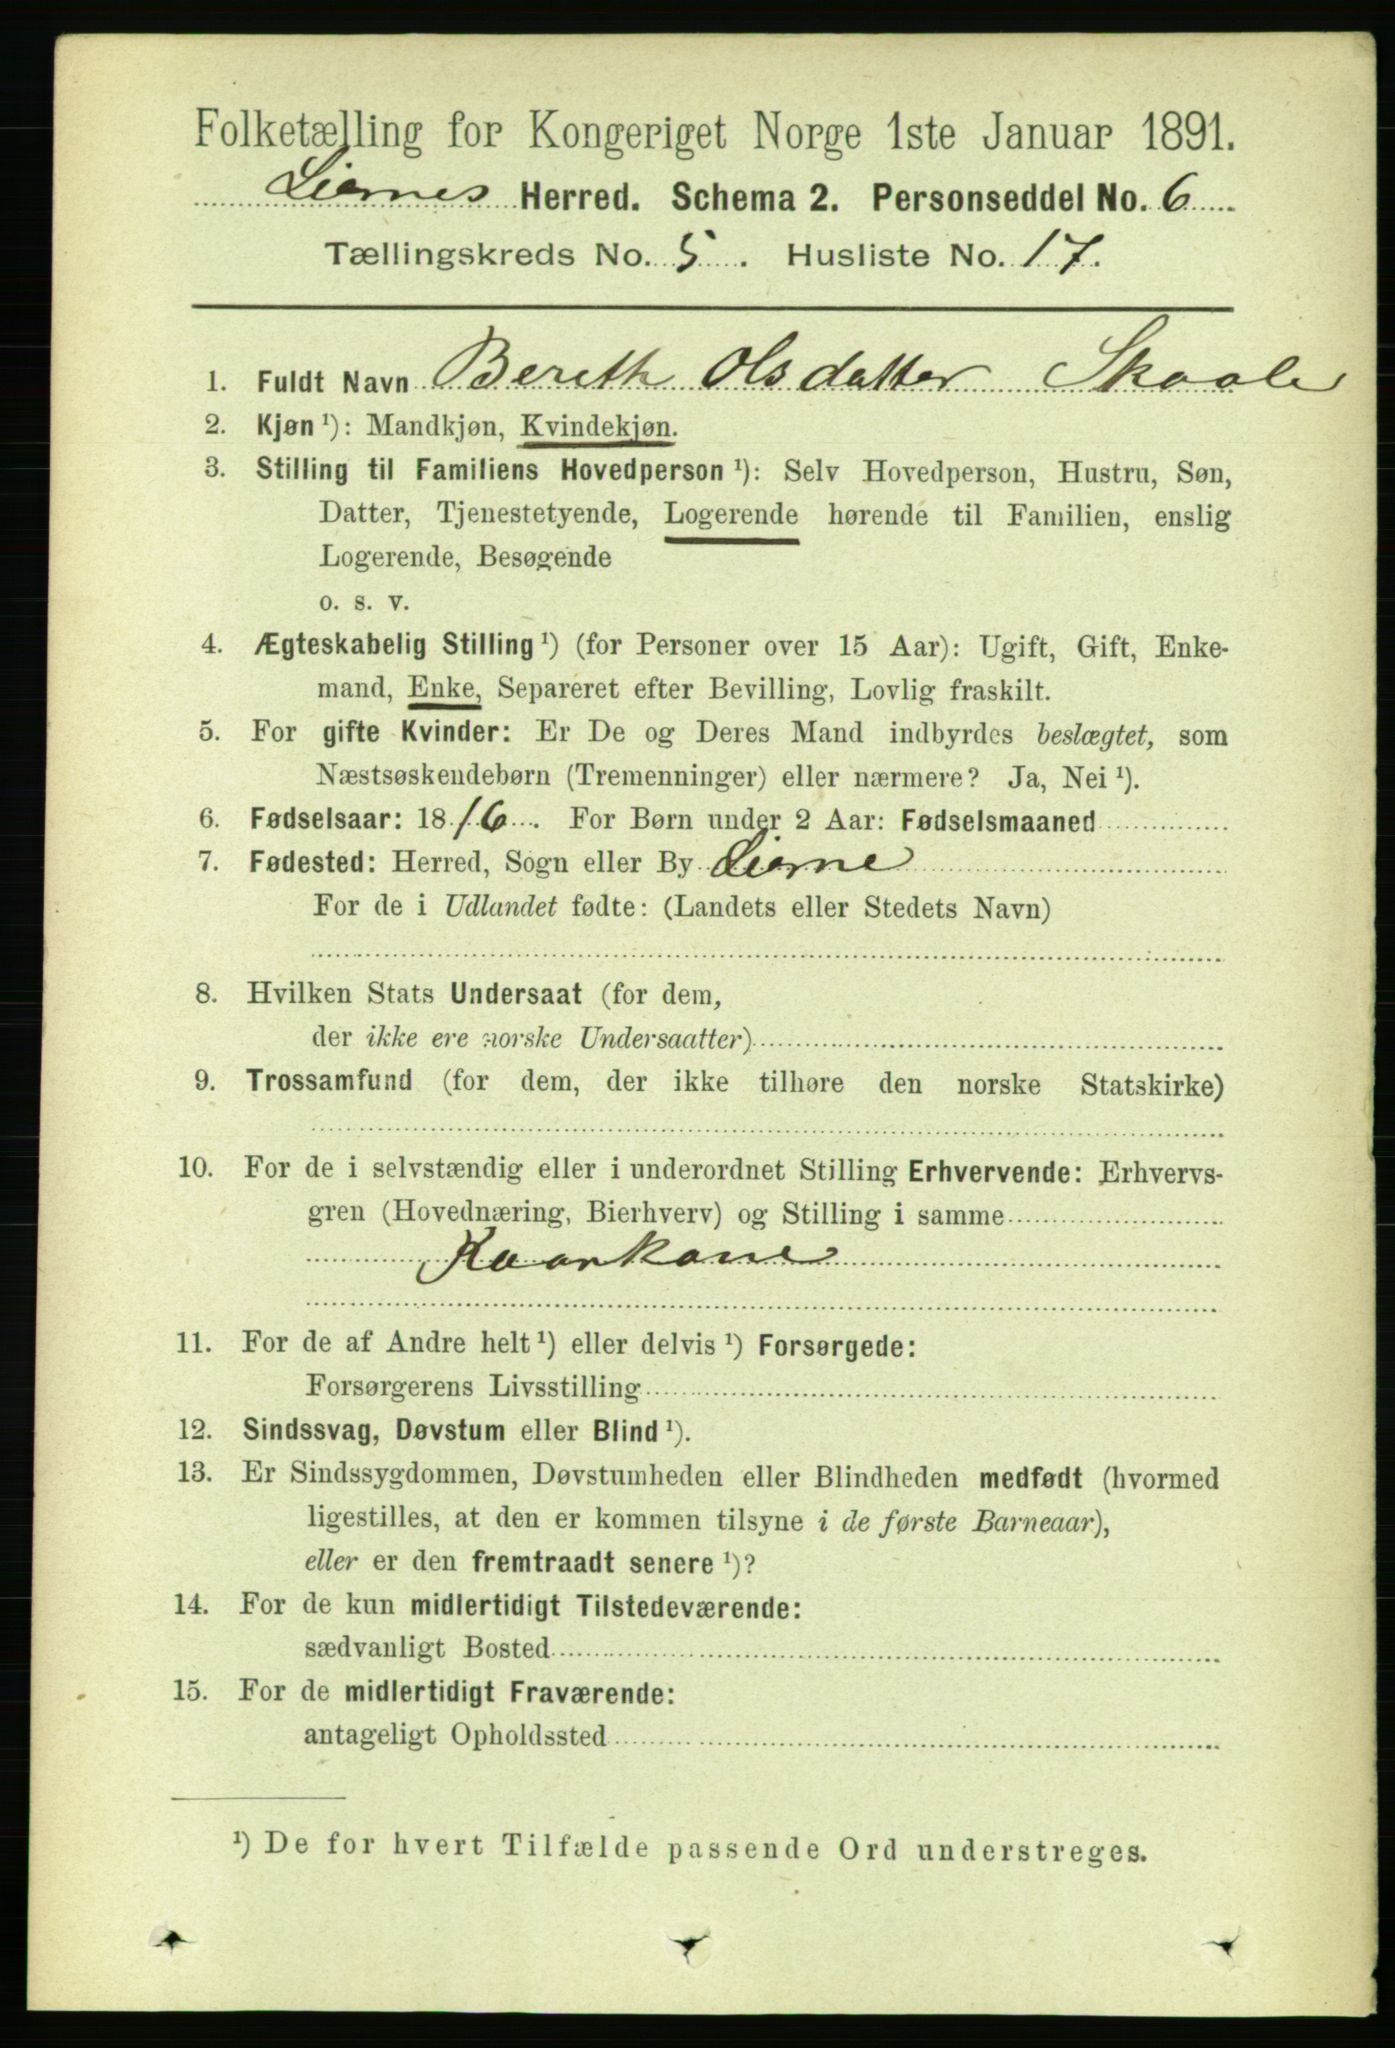 Folketælling for Kongeriget Norge 1ste Januar 1891.
Liernes Herred. Schema 2. Personseddel No. 6
Tællingskreds No. 5. Husliste No. 17.
1. Fuldt Navn Bereth Olsdatter Skaale
2. Kjøn ¹): Mandkjøn, Kvindekjøn.
3. Stilling til Familiens Hovedperson ¹): Selv Hovedperson, Hustru, Søn,
Datter, Tjenestetyende, Logerende hørende til Familien, enslig
Logerende, Besøgende
o. s. v.
4. Ægteskabelig Stilling ¹) (for Personer over 15 Aar): Ugift, Gift, Enke-
mand, Enke, Separeret efter Bevilling, Lovlig fraskilt.
5. For gifte Kvinder: Er De og Deres Mand indbyrdes beslægtet, som
Næstsøskendebørn (Tremenninger) eller nærmere? Ja, Nei ¹).
6. Fødselsaar: 1816. For Børn under 2 Aar: Fødselsmaaned
7. Fødested: Herred, Sogn eller By Lierne
For de i Udlandet fødte: (Landets eller Stedets Navn)
8. Hvilken Stats Undersaat (for dem,
der ikke ere norske Undersaatter)
9. Trossamfund (for dem, der ikke tilhøre den norske Statskirke)
10. For de i selvstændig eller i underordnet Stilling Erhvervende: Erhvervs-
gren (Hovednæring, Bierhverv) og Stilling i samme
Kaarkone
11. For de af Andre helt ¹) eller delvis ¹) Forsørgede:
Forsørgerens Livsstilling
12. Sindssvag, Døvstum eller Blind ¹).
13. Er Sindssygdommen, Døvstumheden eller Blindheden medfødt (hvormed
ligestilles, at den er kommen tilsyne i de første Barneaar),
eller er den fremtraadt senere ¹)?
14. For de kun midlertidigt Tilstedeværende:
sædvanligt Bosted
15. For de midlertidigt Fraværende:
antageligt Opholdssted
¹) De for hvert Tilfælde passende Ord understreges.